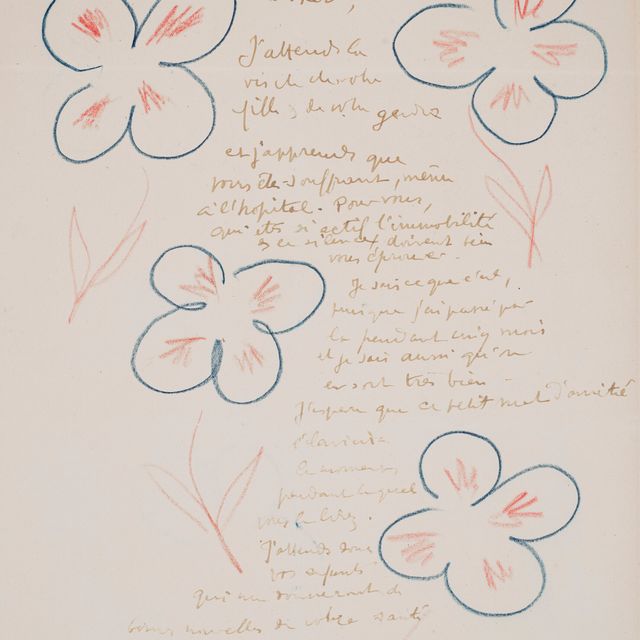 J'attends la
visite de votre
fille & de votre gendre
et j'apprends que
vous êtes souffrant, même
à l'hôpital. Pour vous,
qui êtes si actif l'immobilité
doivent bien
vous éprouver.
Je sais ce que c'est,
puisque j'ai passé par
là pendant cinq mois
et je sais aussi qu'on
en sort très bien
J'espère que ce petit mot d'amitié
le moment
pendant lequel
vous le lirez.
J'attends donc
vos enfants
qui me donneront de
bonnes nouvelles de votre santé